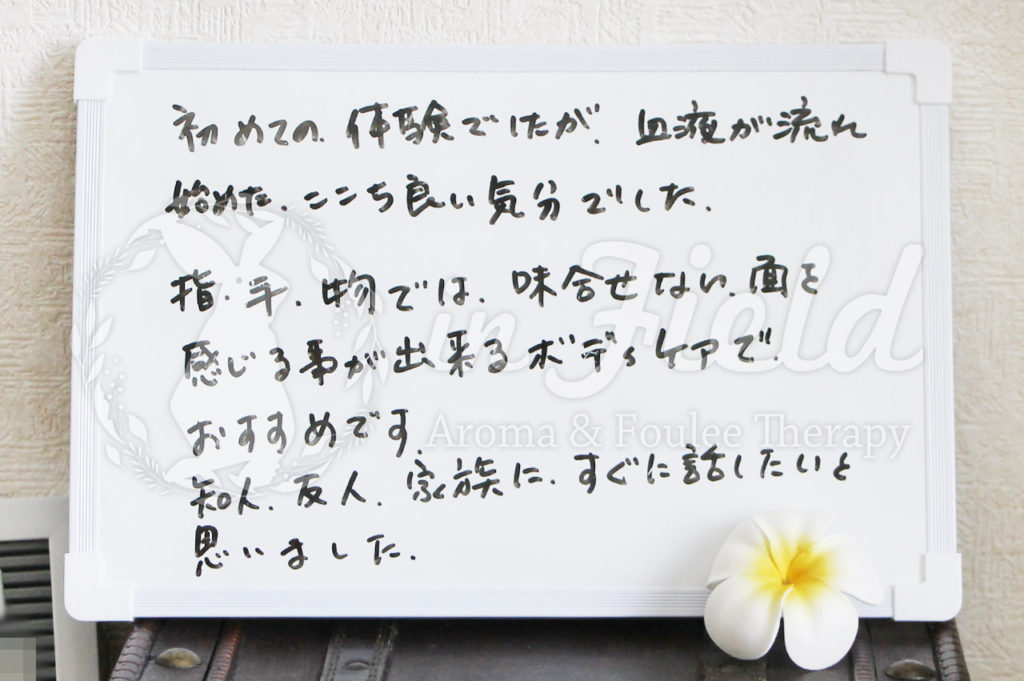 初めての、体験でしたが、血液が流れ
始めた、ここち良い気分でした。
指・手、物では、味合せない、面を
感じる事が出来るボディケアで、
おすすめです。
知人、友人、家族に、すぐに話したいと
思いました。
in Field
Aroma & Foulee Therapy